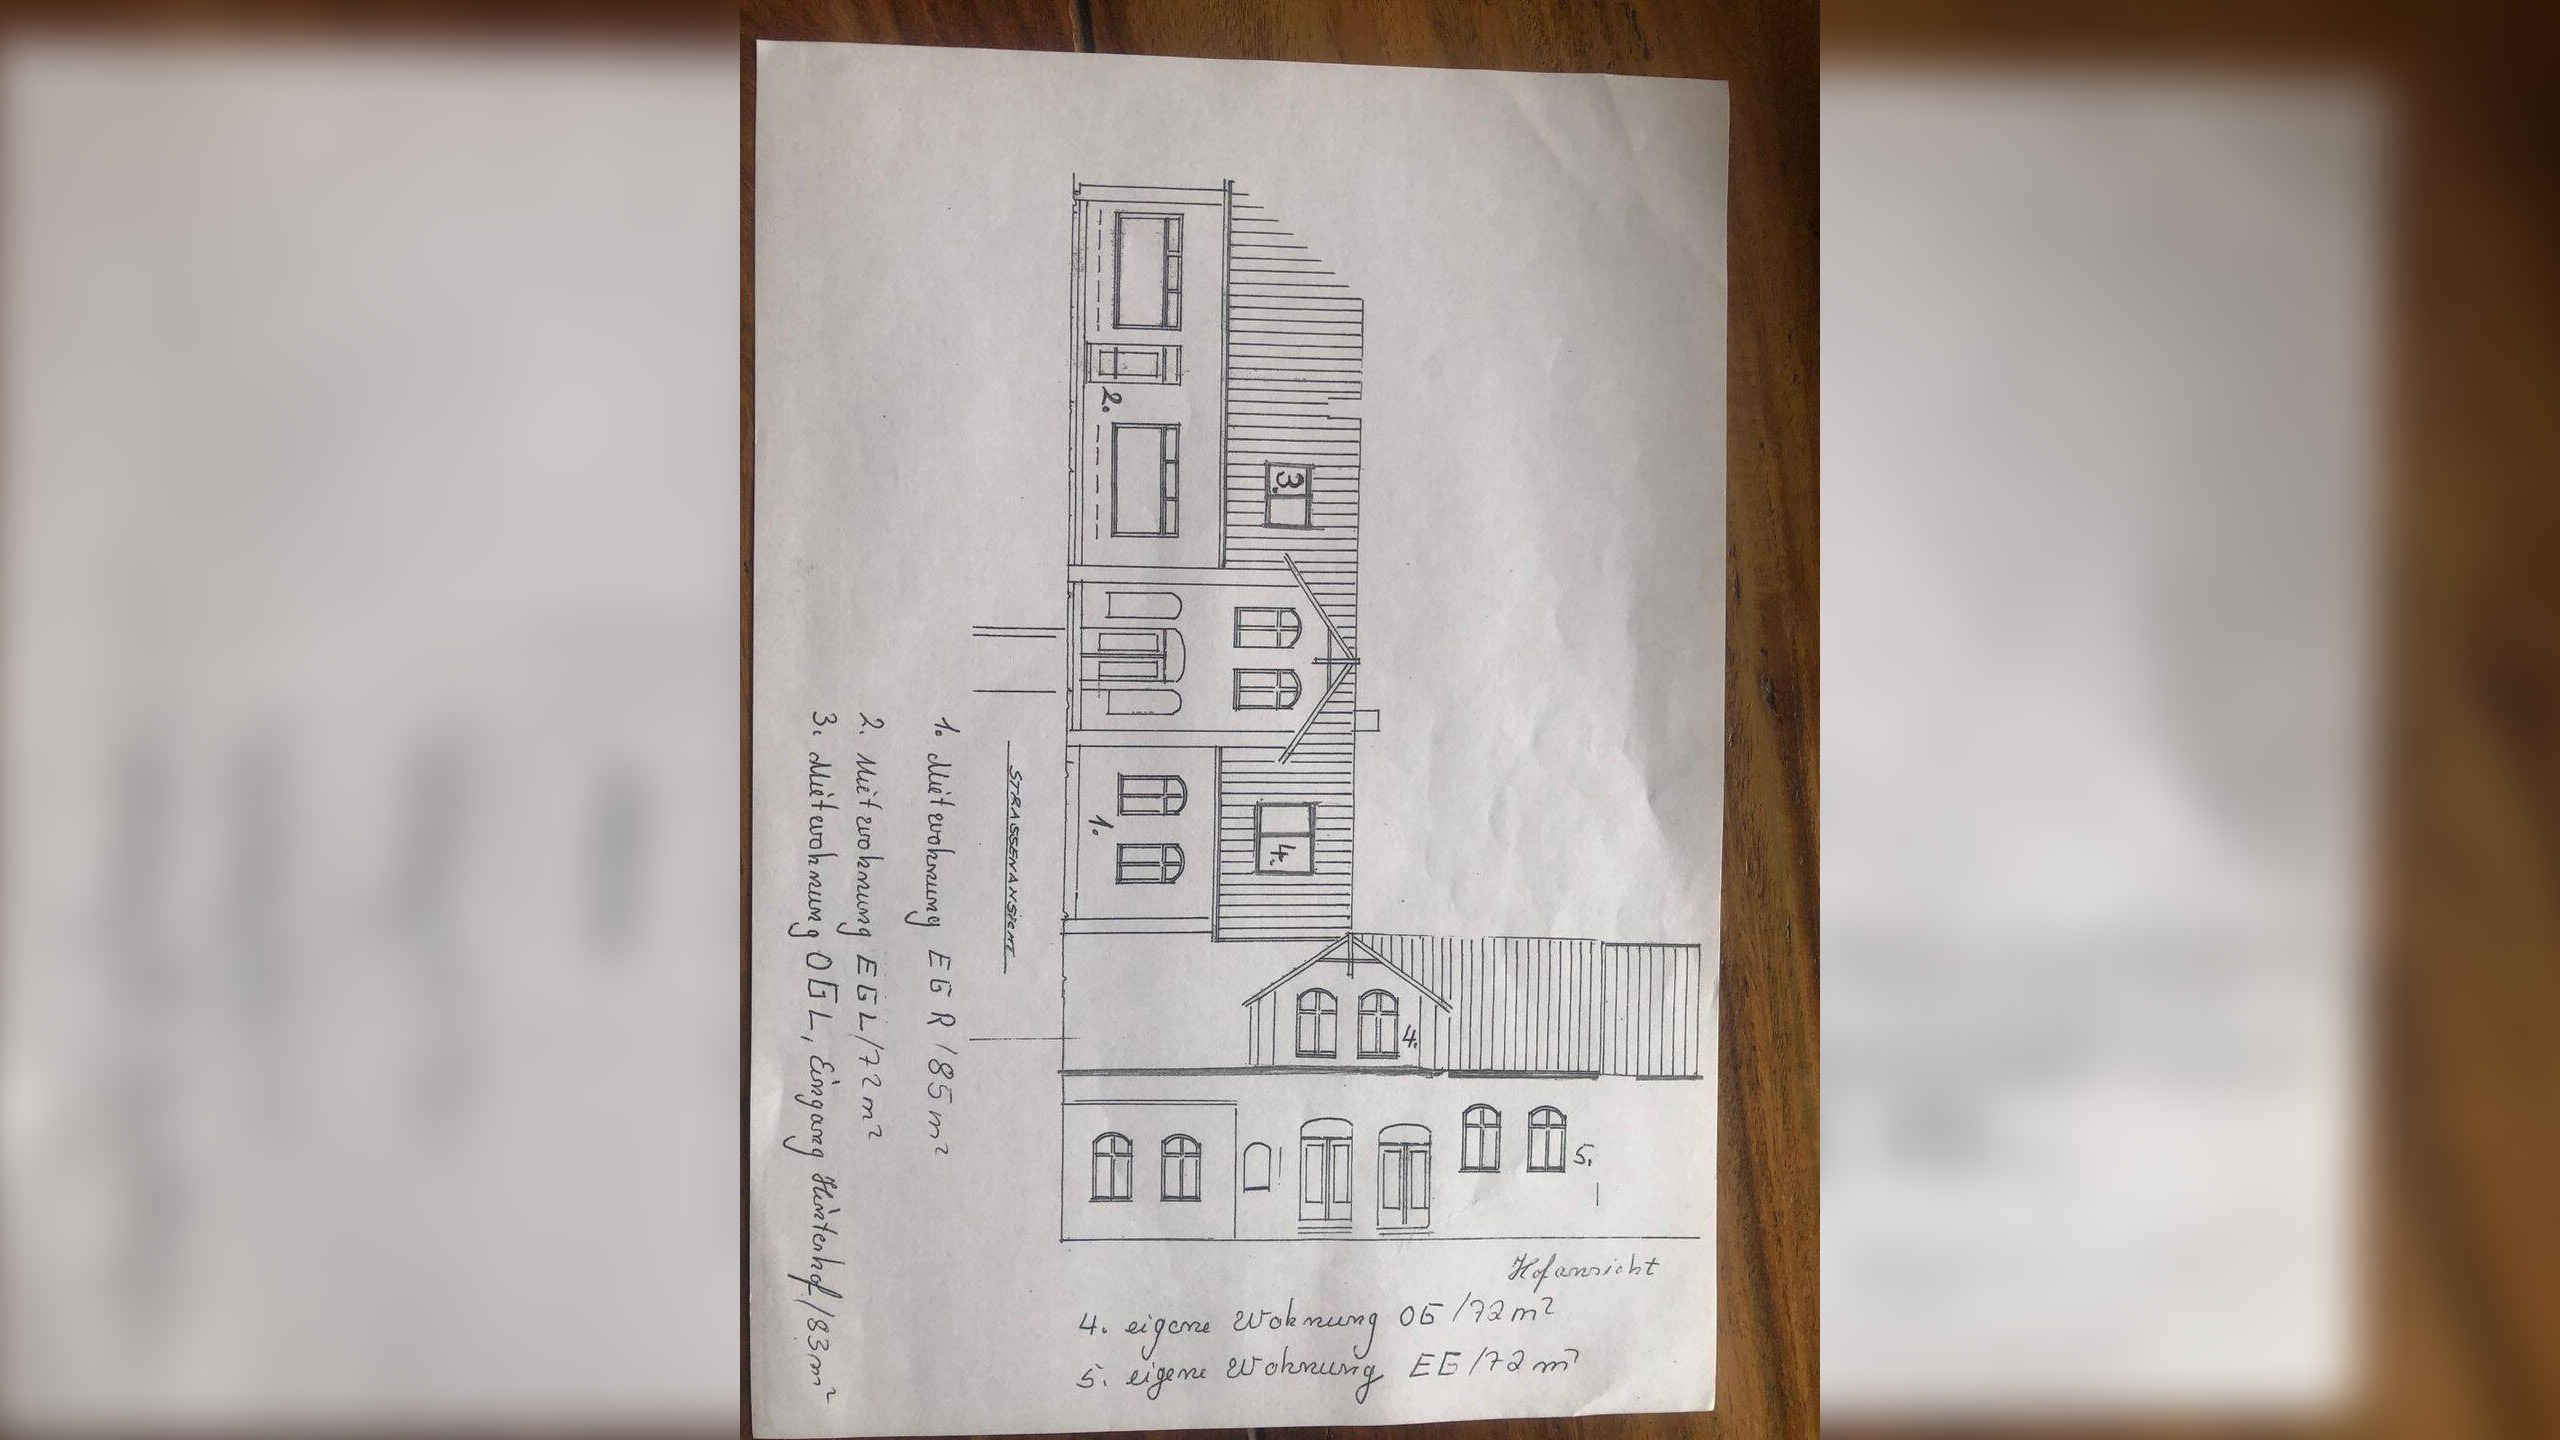 3.
4.
2.
1.
STRASSENANSICHT
1. Mietwohnung EG R /85 m²
2. Mietwohnung EG L /72 m²
3. Mietwohnung OG L, Eingang Hinterhof /83 m²
4.
5.
Hofansicht
4. eigene Wohnung OG /72 m²
5. eigene Wohnung EG /72 m²